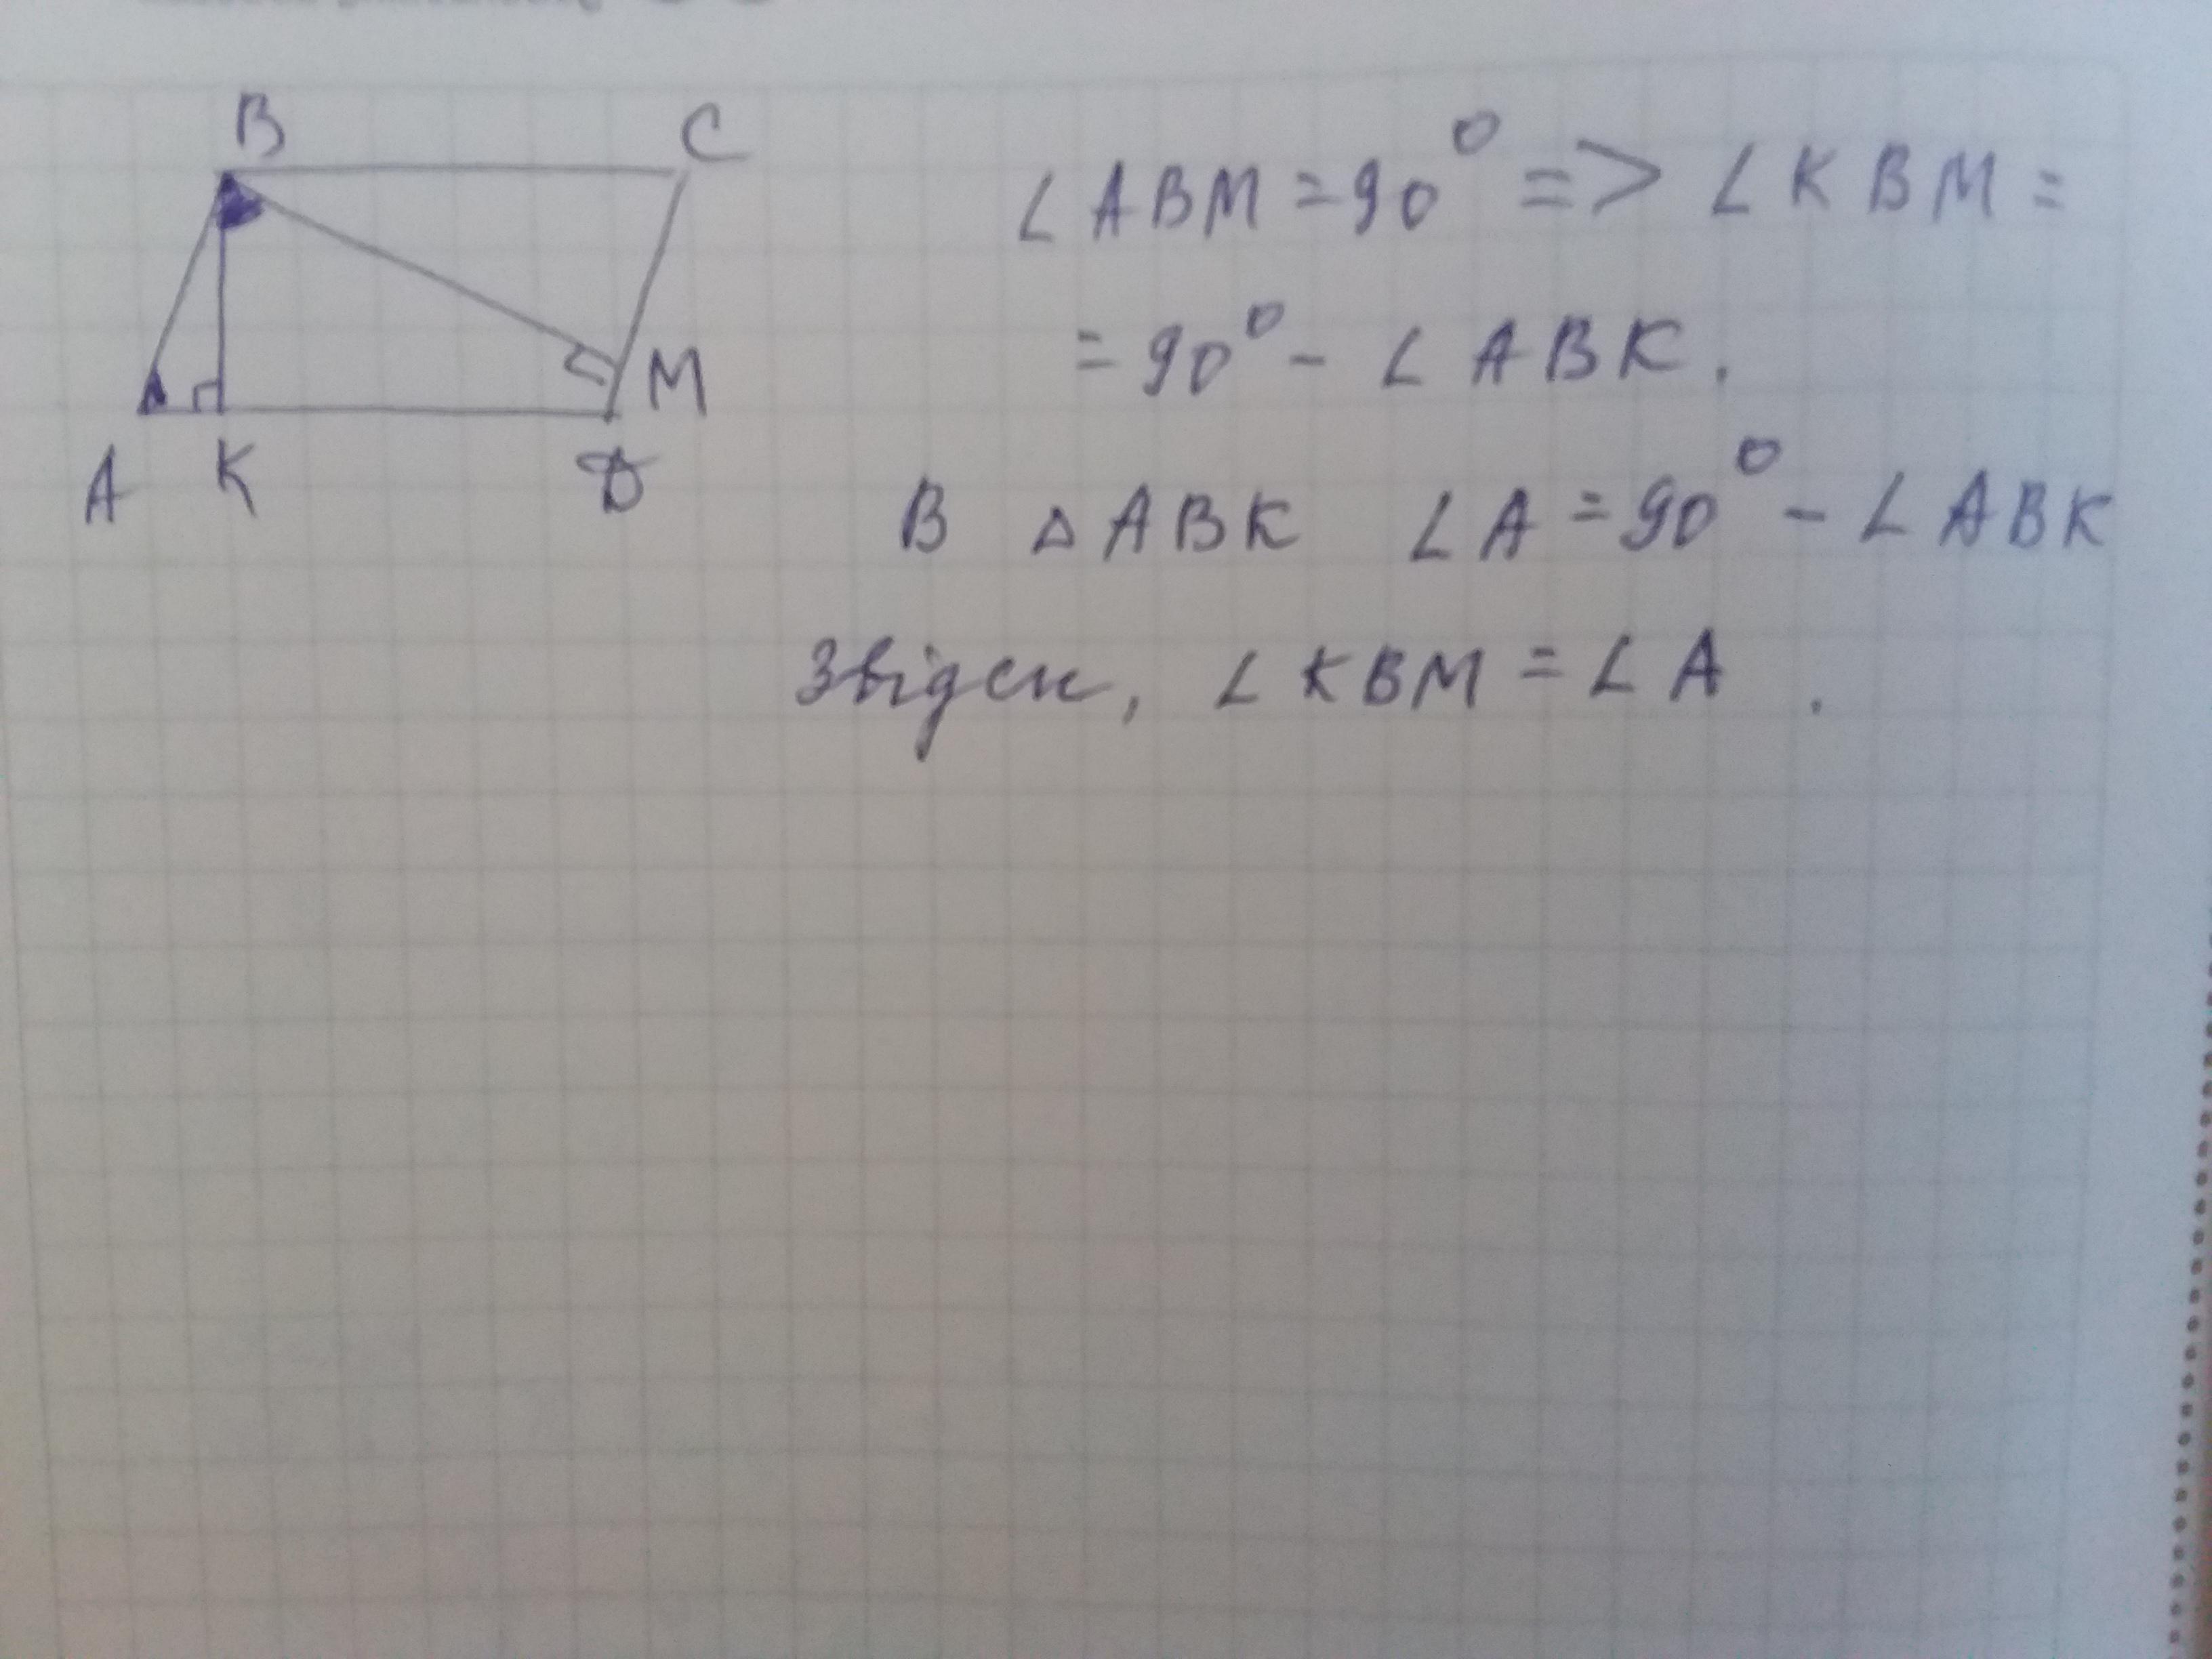 B C
M
A K D
∠ ABM = 90° => ∠ KBM =
= 90° - ∠ ABK.
В △ ABK ∠ A = 90° - ∠ ABK
Звідси, ∠ KBM = ∠ A .